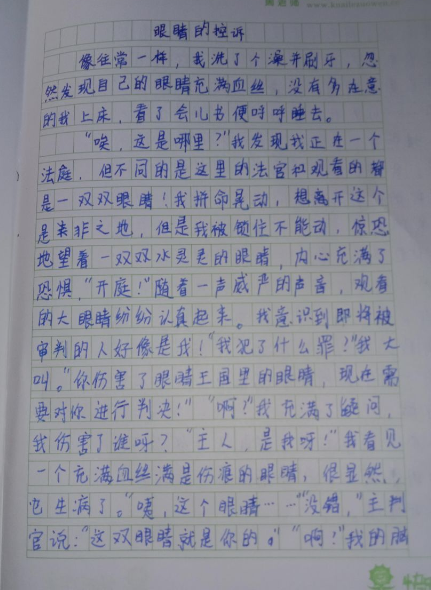 眼睛的控诉
像往常一样，我洗了个澡并刷牙，忽
然发现自己的眼睛充满血丝，没有多在意
的我上床，看了会儿书便呼呼睡去。
“唉，这是哪里？”我发现我正在一个
法庭，但不同的是这里的法官和观看的都
是一双双眼睛！我拼命晃动，想离开这个
是非之地，但是我被锁住不能动，惊恐
地望着一双双水灵灵的眼睛，内心充满了
恐惧，“开庭！”随着一声威严的声音，观看
的大眼睛纷纷认真起来。我意识到即将被
审判的人好像是我！“我犯了什么罪？”我大
叫。“你伤害了眼睛王国里的眼睛，现在需
要对你进行判决！”“啊？”我充满了疑问，
我伤害了谁呀？“主人，是我呀！”我看见
一个充满血丝满是伤痕的眼睛，很显然，
它生病了。“噫，这个眼睛……”“没错，”主判
官说：“这双眼睛就是你的。”“啊！”我的脑